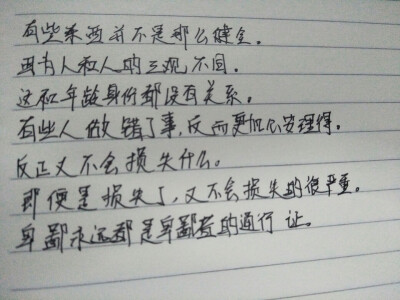 有些东西并不是那么健全。
因为人和人的三观不同。
这和年龄身份都没有关系。
有些人做错了事，反而更加心安理得。
反正又不会损失什么。
即便是损失了，又不会损失的很严重。
卑鄙永远都是卑鄙者的通行证。